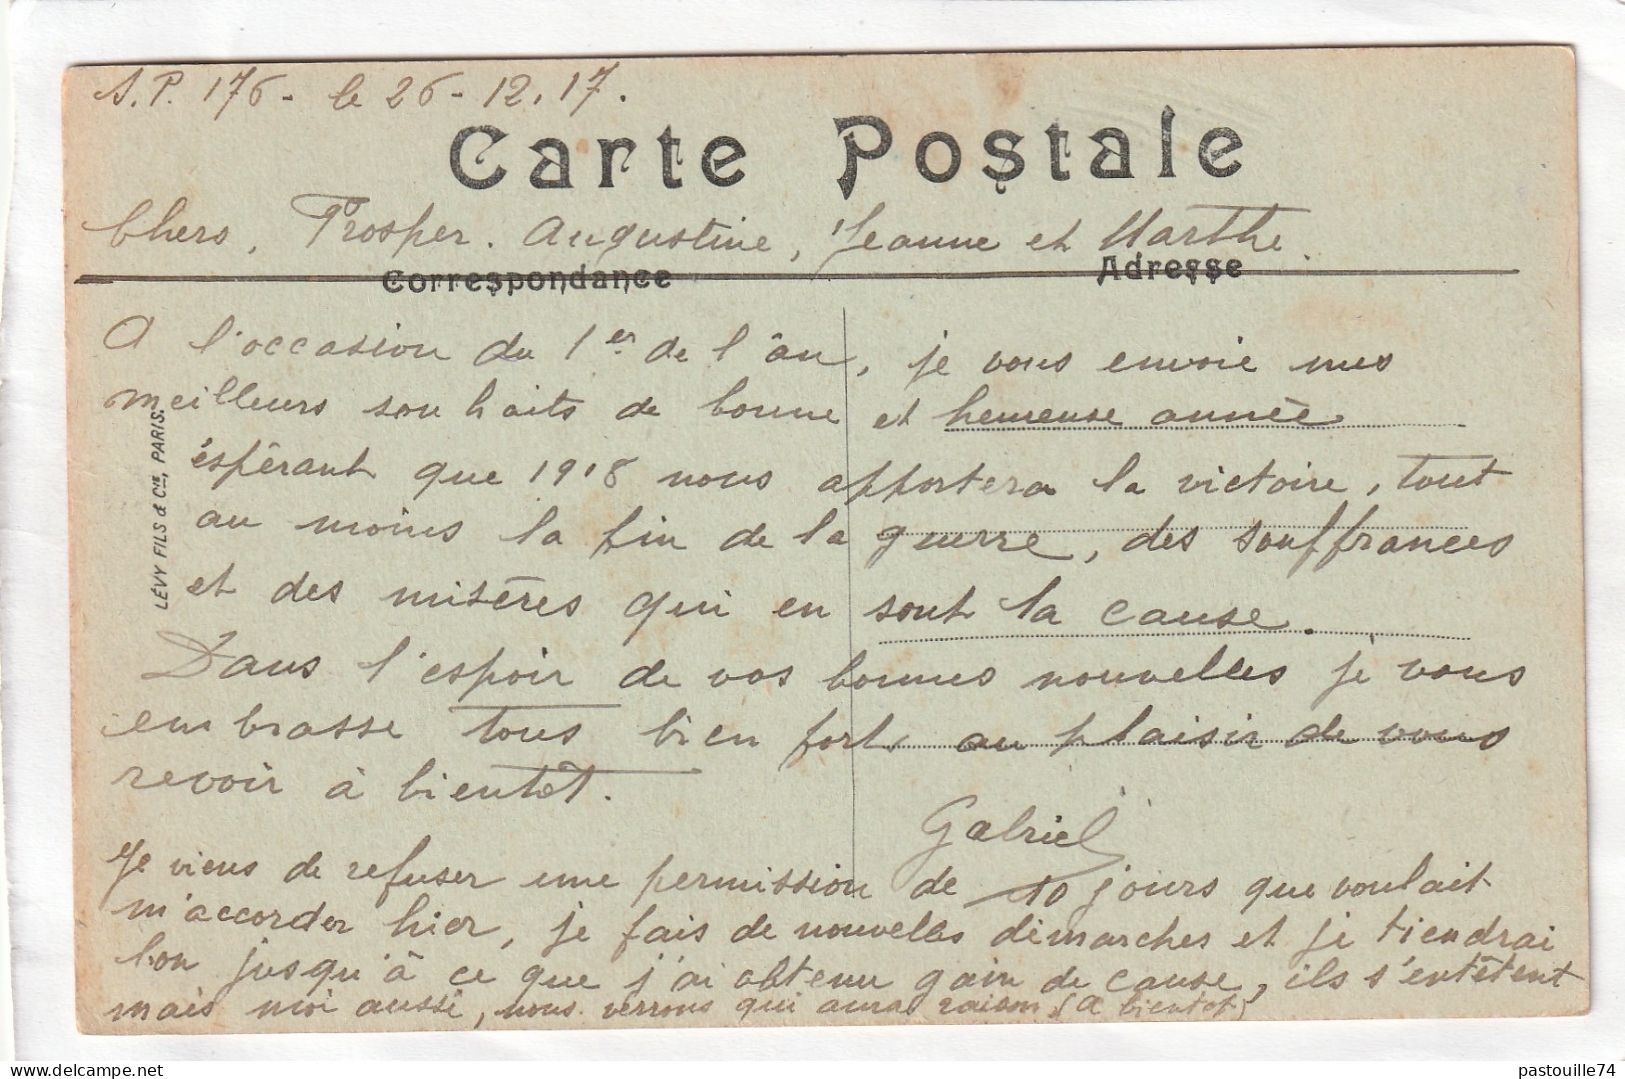 S.P. 176 - le 26 - 12.17.
Carte Postale
Chers, Prosper. Augustine, Jeanne et Marthe.
Correspondance
Adresse
A l'occasion du 1er de l'ân, je vous envoie mes
meilleurs souhaits de bonne et heureuse année
éspêrant que 1918 nous apportera la victoire, tout
au moins la fin de la guerre, des souffrances
et des misères qui en sont la cause.
Dans l'espoir de vos bonnes nouvelles je vous
embrasse tous bien fort, au plaisir de vous
revoir à bientôt.
Gabriel
Je viens de refuser une permission de 10 jours que voulait
m'accorder hier, je fais de nouvelles démarches et je tiendrai
bon jusqu'à ce que j'ai obtenu gain de cause, ils s'entêtent
mais moi aussi, nous verrons qui aura raison (a bientot)
LÉVY FILS & Cie, PARIS.
pastouille74